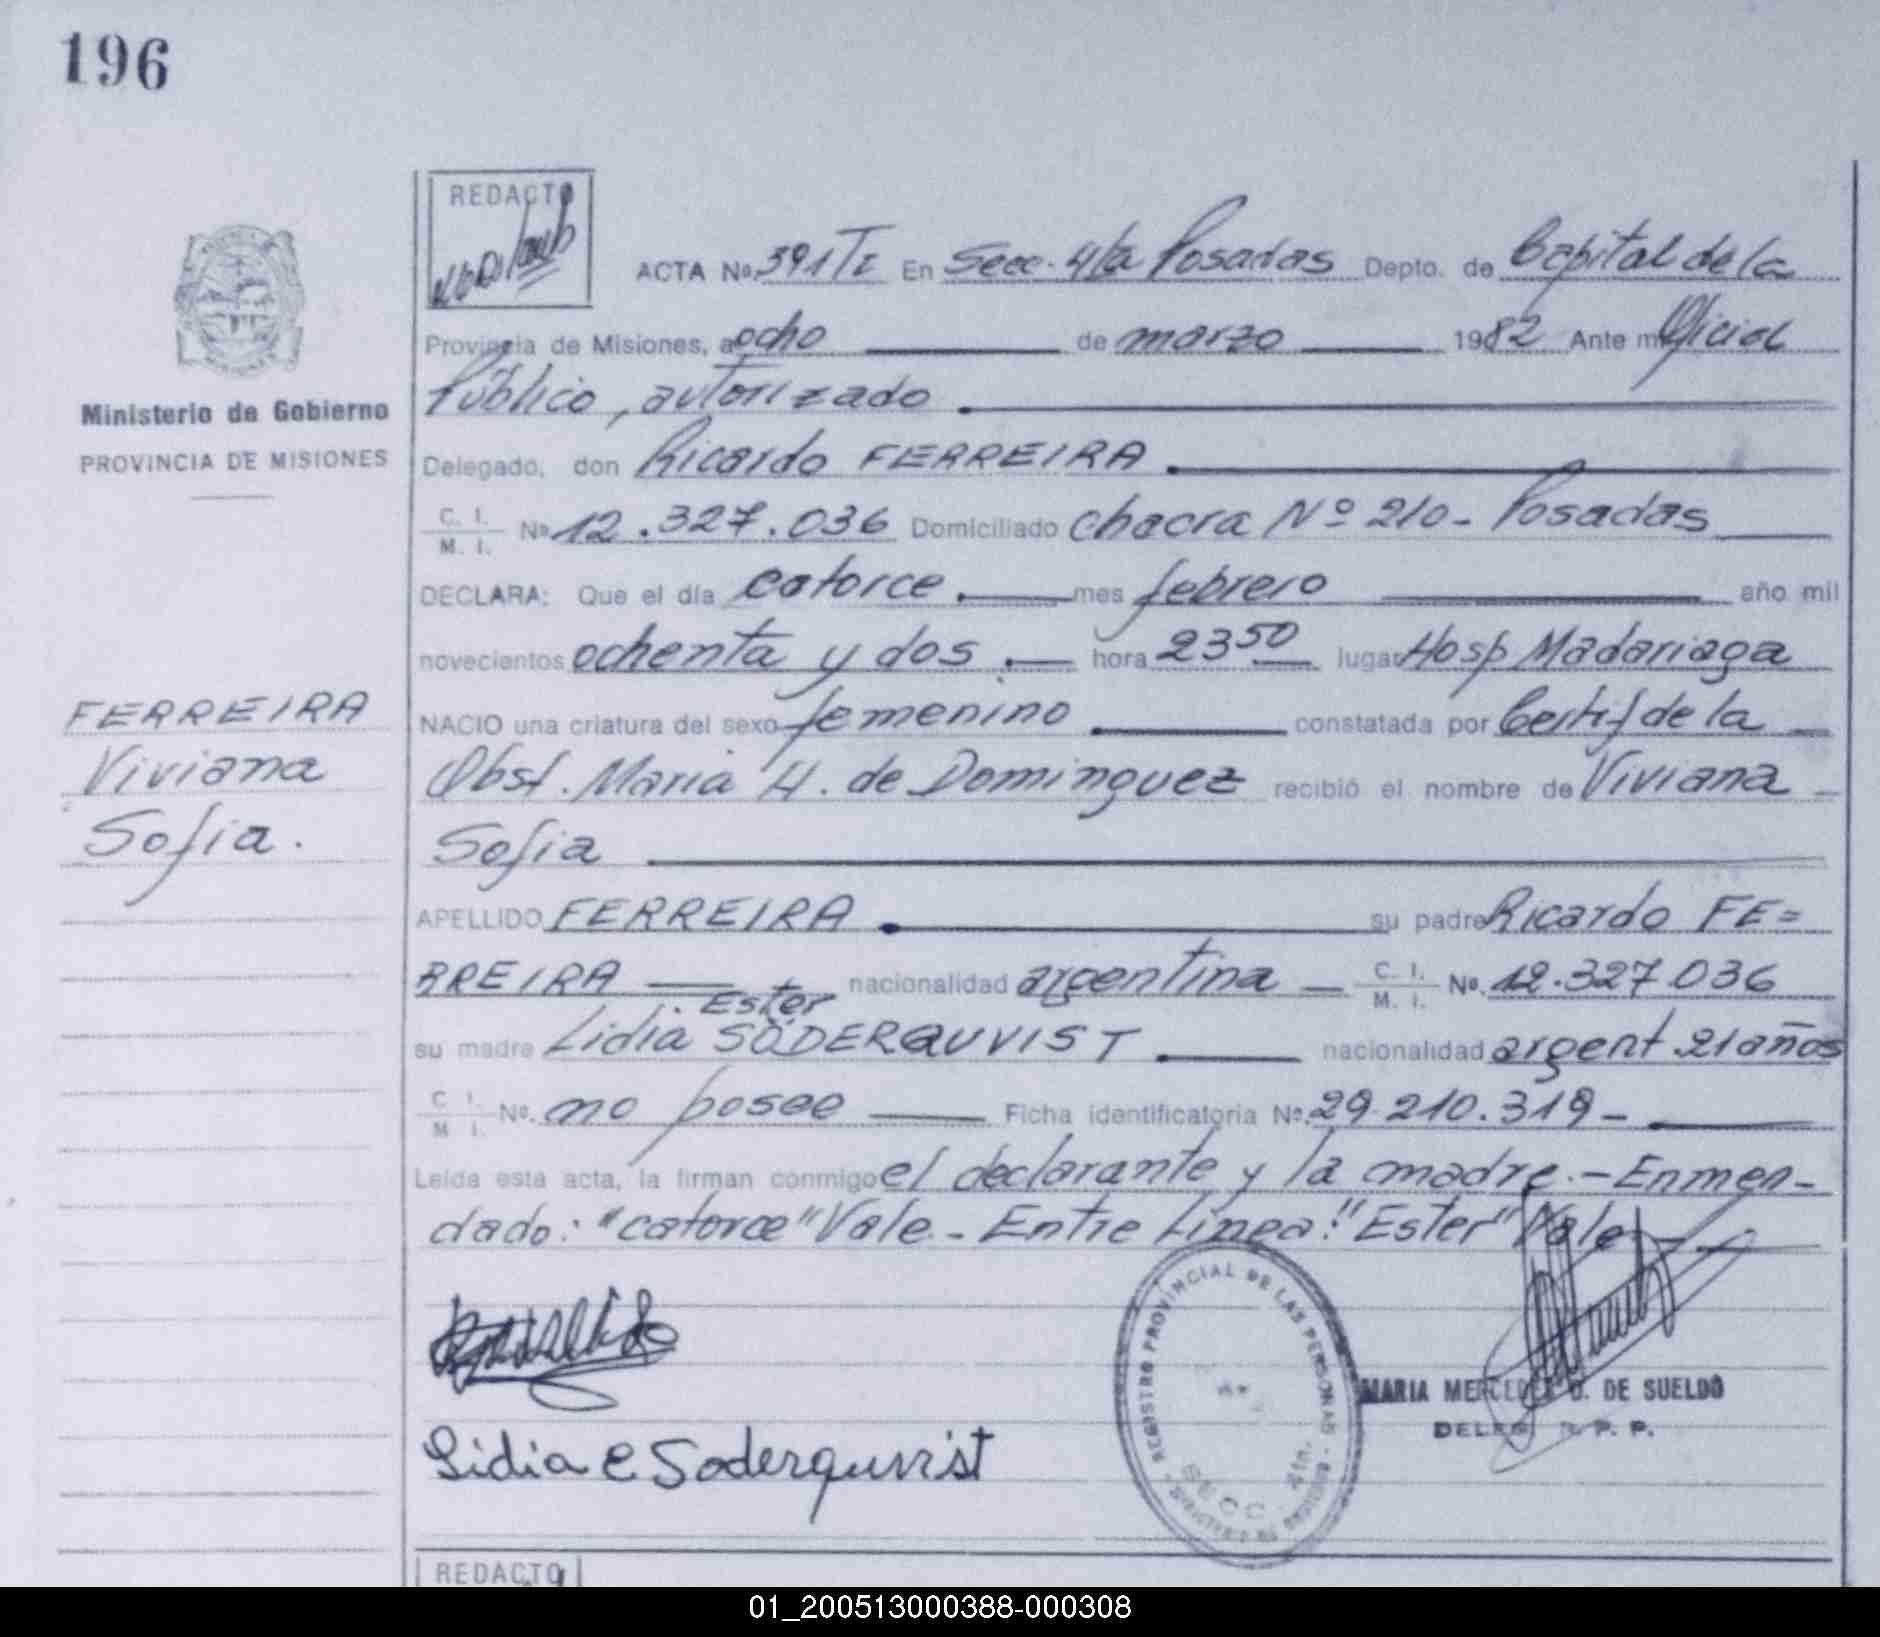 196
REDACTO
ACTA No. 391 TI En Secc. 4ta Posadas Depto. de Capital de la
Provincia de Misiones, a ocho de marzo 1982 Ante mi Oficial
Público, autorizado
Ministerio de Gobierno
PROVINCIA DE MISIONES
Delegado, don Ricardo FERREIRA
C. I. M. I. No 12.327.036 Domiciliado chacra Nº 210 - Posadas
DECLARA: Que el día catorce mes febrero año mil
novecientos ochenta y dos hora 23 50 lugar Hosp Madariaga
NACIO una criatura del sexo femenino constatada por Certif de la
Obst. Maria H. de Dominguez recibió el nombre de Viviana
Sofia
FERREIRA
Viviana
Sofia.
APELLIDO FERREIRA su padre Ricardo FE=
RREIRA nacionalidad argentina C. I. M. I. No. 12.327.036
Ester
su madre Lidia SÖDERQUVIST nacionalidad argent. 21 años
C I. M I. No. no posee Ficha identificatoria No. 29.210.319-
Leída esta acta, la firman conmigo el declarante y la madre.- Enmen-
dado: "catorce" Vale - Entre Linea: "Ester" Vale
Lidia E Soderquvist
REGISTRO PROVINCIAL DE LAS PERSONAS
SECC 4ta.
MARIA MERCEDES D. DE SUELDO
DELEG. R. P. P.
REDACTO
01_200513000388-000308